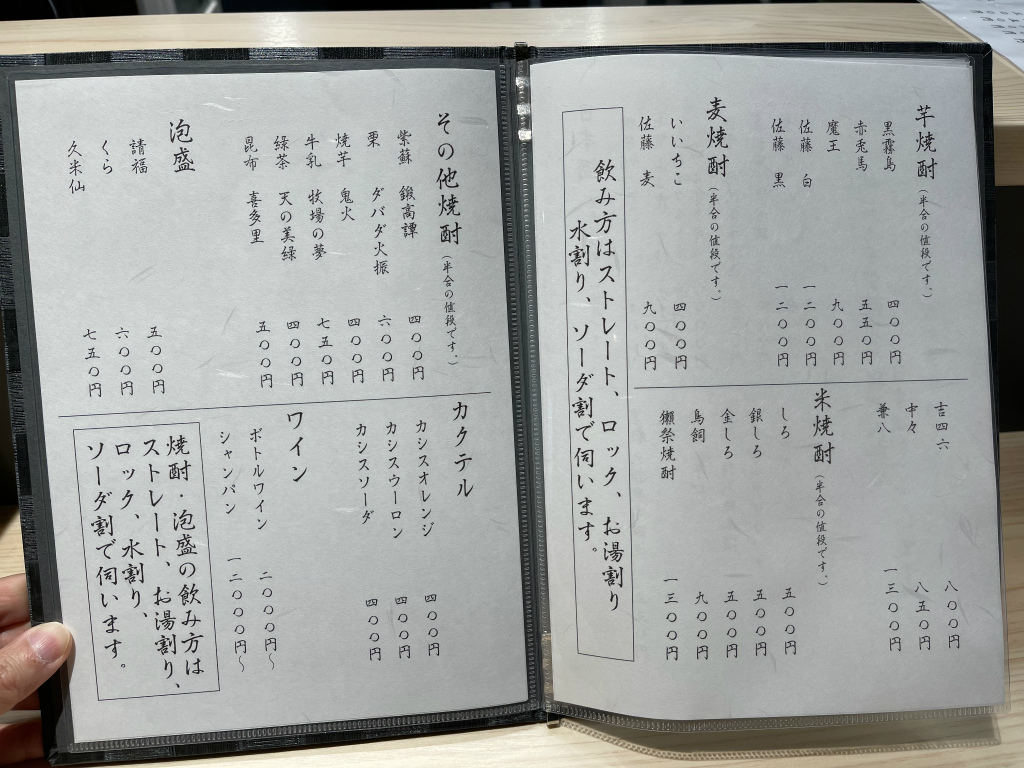 芋焼酎（半合の値段です。）
黒霧島 四〇〇円
赤兎馬 五五〇円
魔王 九〇〇円
佐藤 白 一二〇〇円
佐藤 黒 一二〇〇円
麦焼酎（半合の値段です。）
いいちこ 四〇〇円
佐藤 麦 九〇〇円
吉四六 八〇〇円
中々 八五〇円
兼八 一三〇〇円
米焼酎（半合の値段です。）
しろ 五〇〇円
銀しろ 五〇〇円
金しろ 五〇〇円
鳥飼 九〇〇円
獺祭焼酎 一三〇〇円
飲み方はストレート、ロック、お湯割り
水割り、ソーダ割で伺います。
その他焼酎（半合の値段です。）
紫蘇 鍛高譚 四〇〇円
栗 ダバダ火振 六〇〇円
焼芋 鬼火 四〇〇円
牛乳 牧場の夢 七五〇円
緑茶 天の美緑 四〇〇円
昆布 喜多里 五〇〇円
泡盛
請福 五〇〇円
くら 六〇〇円
久米仙 七五〇円
カクテル
カシスオレンジ 四〇〇円
カシスウーロン 四〇〇円
カシスソーダ 四〇〇円
ワイン
ボトルワイン 二〇〇〇円～
シャンパン 一二〇〇〇円～
焼酎・泡盛の飲み方は
ストレート、お湯割り、
ロック、水割り、
ソーダ割で伺います。